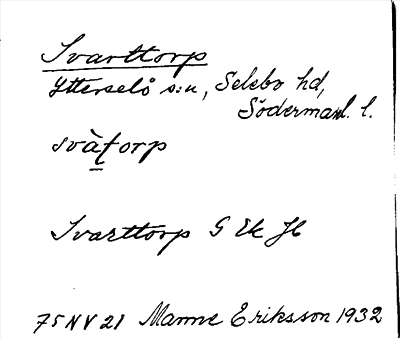 Svarttorp
Ytterselö s:n, Selebo hd,
Södermanl. l.
svàtorp
Svarttorp G Ek Jb
75 NV 21 Manne Eriksson 1932